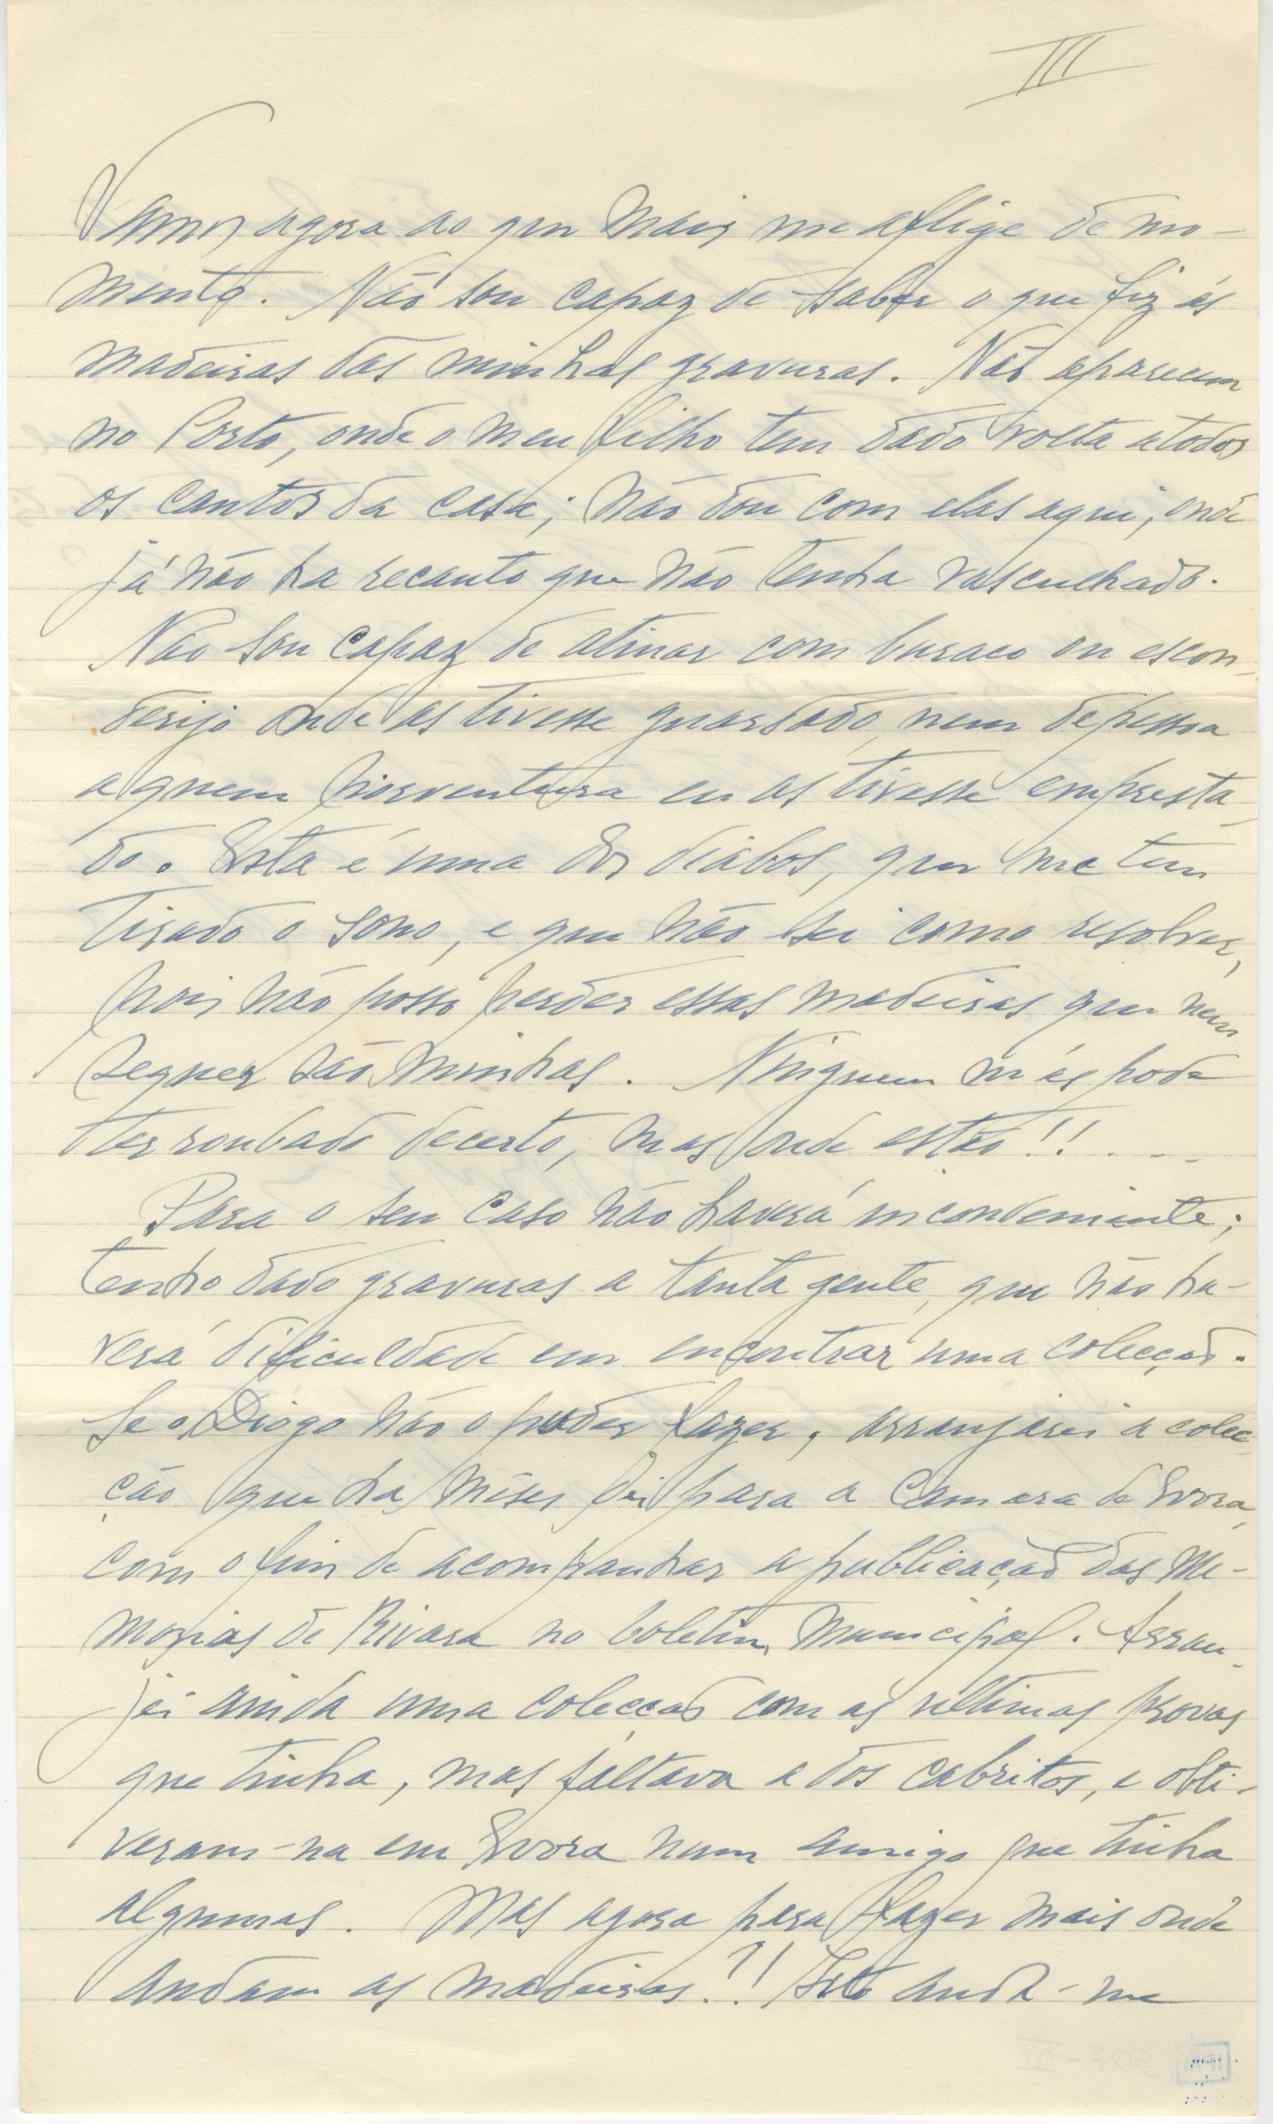 III
Vamos agora ao que mais me aflige de mo-
mento. Não sou capaz de saber o que fiz ás
madeiras das minhas gravuras. Não aparecem
no Porto, onde o meu filho tem dado volta a todos
os cantos da casa; não dou com elas aqui, onde
já não ha recanto que não tenha vasculhado.
Não sou capaz de atinar com buraco ou escon-
derijo onde as tivesse guardado, nem de pessoa
a quem porventura eu as tivesse empresta-
do. Esta é uma dos diabos, que me tem
tirado o sono, e que não sei como resolver,
pois não posso perder essas madeiras que nem
sequer são minhas. Ninguem m'as pode
ter roubado decerto, mas onde estão!! . . . .
Para o seu caso não haverá inconveniente;
tenho dado gravuras a tanta gente, que não ha-
verá dificuldade em encontrar uma colecção.
Se o Diogo não o puder fazer, arranjarei a colec-
ção que ha mêses dei para a Camara de Evora,
com o fim de acompanhar a publicação das Me-
morias de Rivara no boletim Municipal. Arran-
jei ainda uma colecção com as ultimas provas
que tinha, mas faltava a dos cabritos, e obti-
veram-na em Evora num amigo que tinha
algumas. Mas agora para fazer mais onde
andam as madeiras?! Isto anda-me